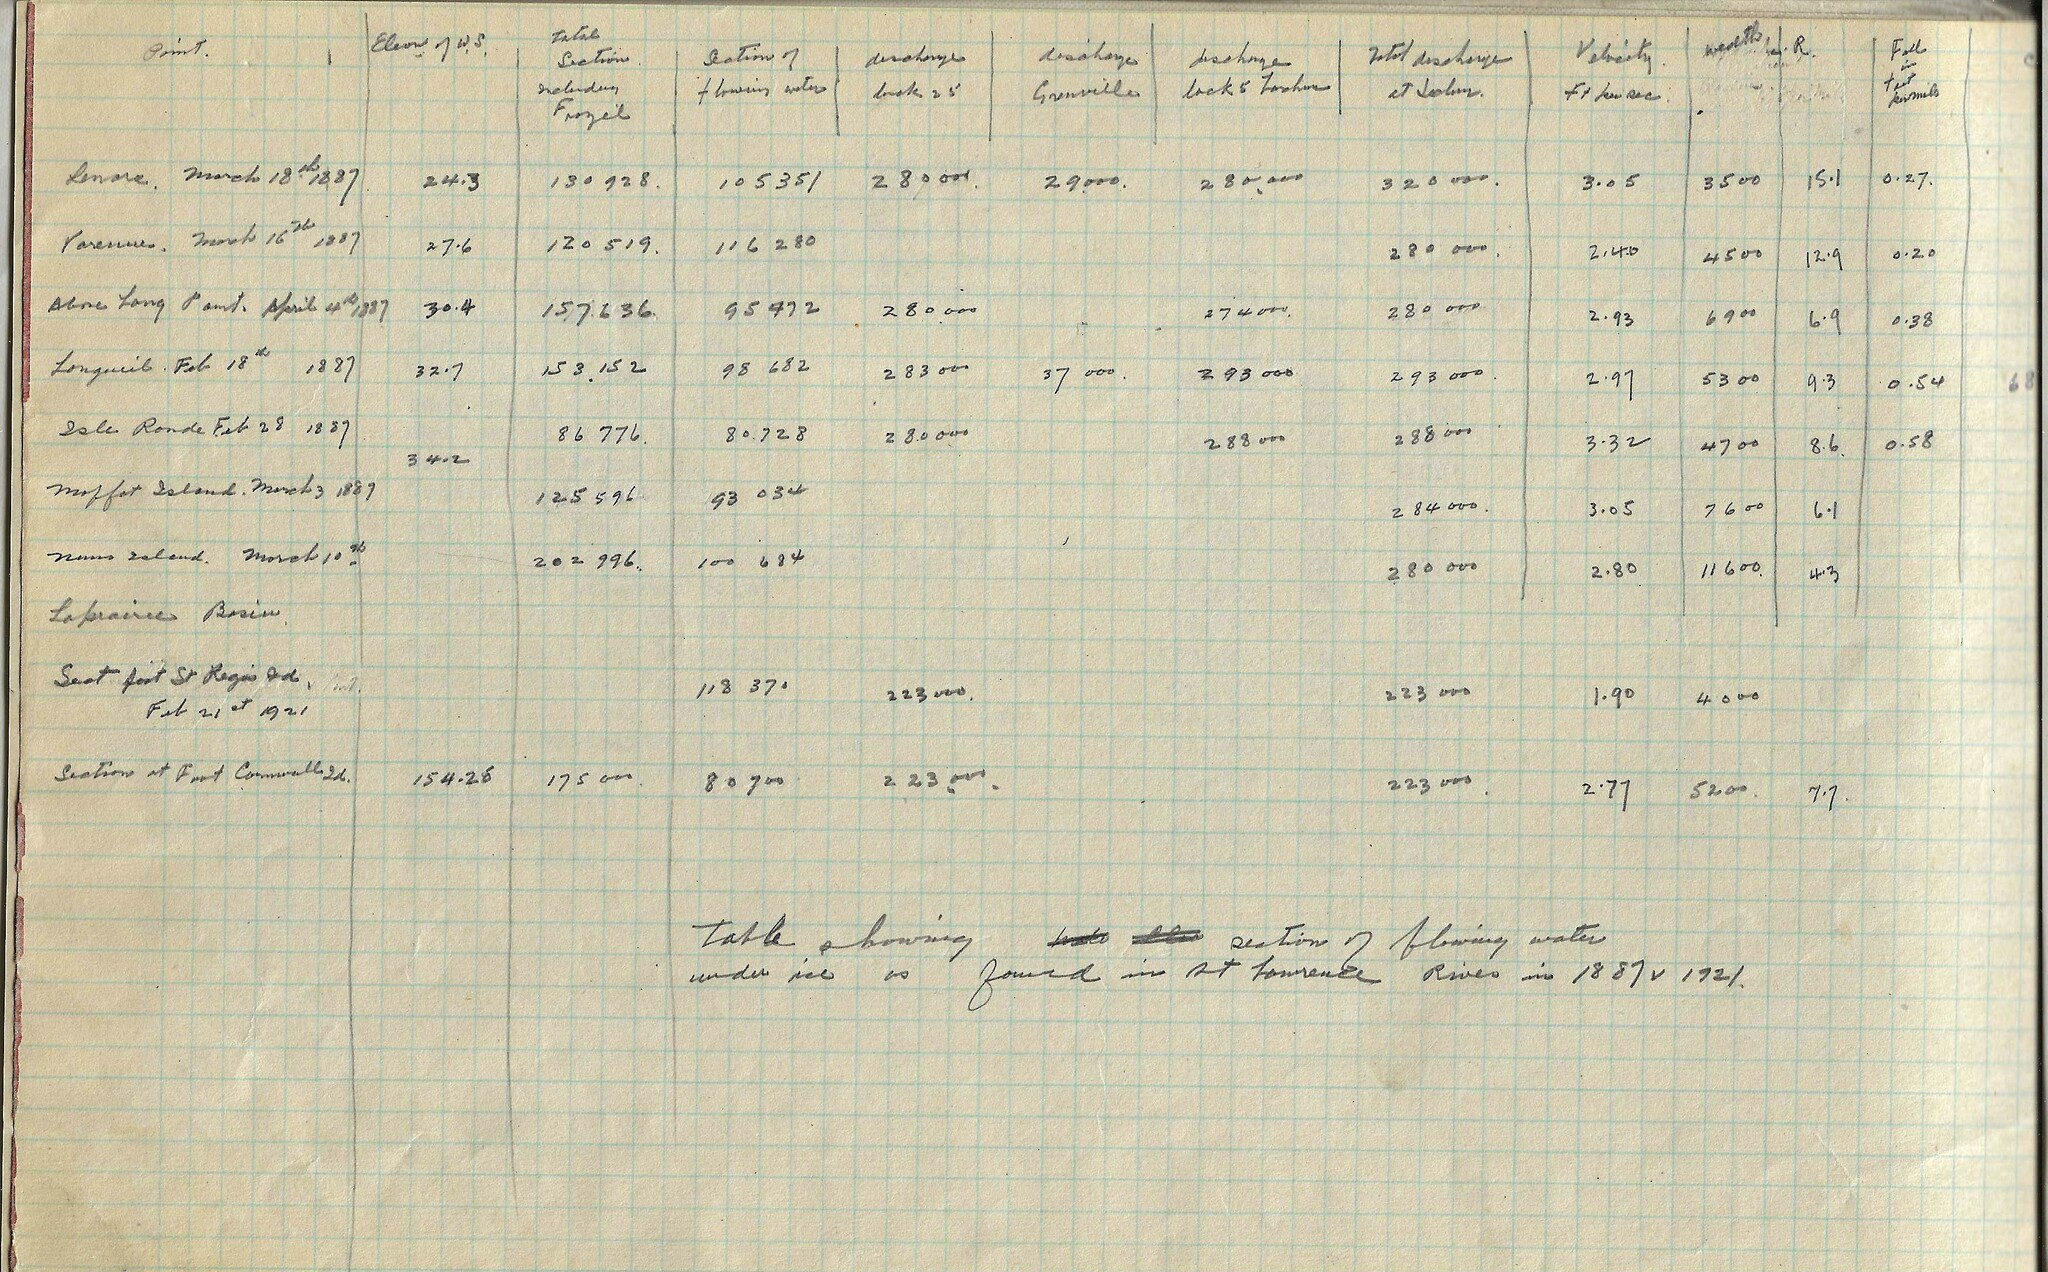 Point. Elevn of W.S. total Section including Frazil Section of flowing water discharge lock 25 discharge Grenville discharge lock 5 Lachine Total discharge at Section. Velocity Ft per sec. width R. Fall in feet per mile
March 18th 1887 24.3 130 928. 105351 280 000. 29000. 280,000 320 000. 3.05 3500 15.1 0.27.
Varennes. March 16th 1887 27.6 120 519. 116 280 280 000. 2.40 4500 12.9 0.20
Above Long Point. April 4th 1887 30.4 157.636. 95 472 280 000 274 000. 280 000 2.93 6900 6.9 0.38
Longueil. Feb 18th 1887 32.7 153.152 98 682 283 000 37 000. 293 000 293 000. 2.97 5300 9.3 0.54
Isle Ronde Feb 28 1887 86 776. 80.728 280 000 288 000 288 000 3.32 4700 8.6. 0.58
34.2
Moffat Island. March 3 1887 125 596 93 034 284 000. 3.05 7600 6.1
Nuns Island. March 10th 202 996. 100 684 280 000 2.80 11600. 4.3
Laprairie Basin
Sect foot St Regis Id. 118 370 223 000. 223 000 1.90 4000
Feb 21st 1921
Section at Foot Cornwall Id. 154.26 175 000. 80700 223 000. 223 000. 2.77 5200. 7.7.
Table showing section of flowing water
under ice as found in St Lawrence River in 1887 & 1921.